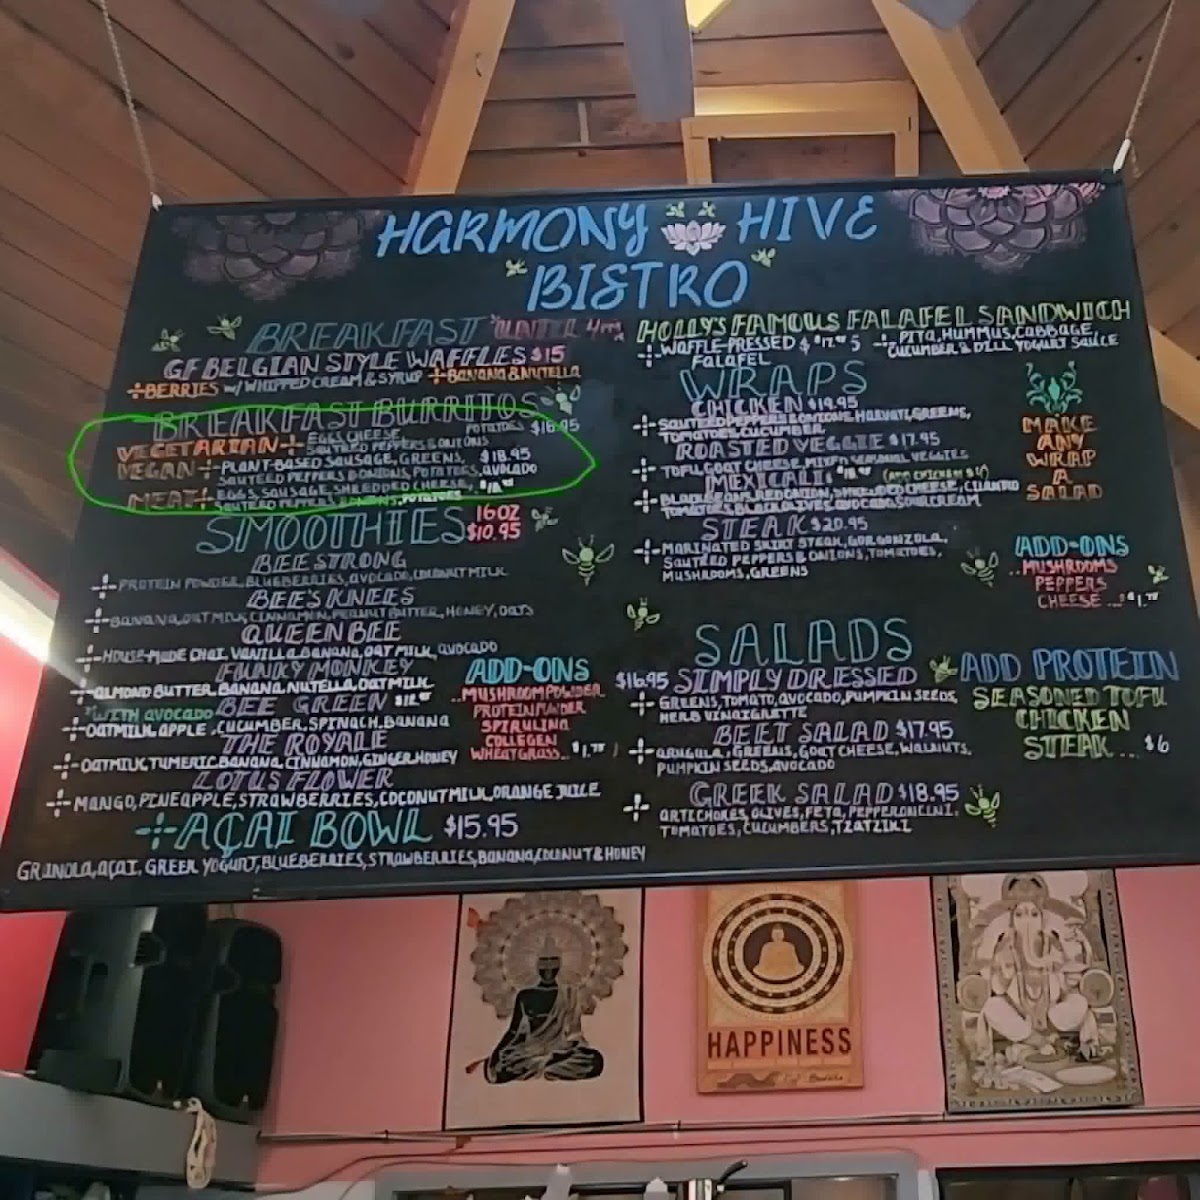 HARMONY HIVE
BISTRO
BREAKFAST *UNTIL 4pm
GF BELGIAN STYLE WAFFLES $15
BERRIES W/ WHIPPED CREAM & SYRUP BANANA & NUTELLA
BREAKFAST BURRITOS
VEGETARIAN EGGS, CHEESE, POTATOES $16.95
SAUTEED PEPPERS & ONIONS
VEGAN PLANT-BASED SAUSAGE, GREENS, $18.95
SAUTEED PEPPERS & ONIONS, POTATOES, AVOCADO
MEAT EGGS, SAUSAGE, SHREDDED CHEESE,
SAUTEED PEPPERS & ONIONS, POTATOES
SMOOTHIES 16OZ
$10.95
BEE STRONG
PROTEIN POWDER, BLUEBERRIES, AVOCADO, COCONUT MILK
BEE'S KNEES
BANANA, OATMILK, CINNAMON, PEANUT BUTTER, HONEY, OATS
QUEEN BEE
HOUSE-MADE CHAI, VANILLA, BANANA, OAT MILK, AVOCADO
FUNKY MONKEY
ALMOND BUTTER, BANANA, NUTELLA, OATMILK
*WITH AVOCADO BEE GREEN
OATMILK, APPLE, CUCUMBER, SPINACH, BANANA
THE ROYALE
OATMILK, TUMERIC, BANANA, CINNAMON, GINGER, HONEY
LOTUS FLOWER
MANGO, PINEAPPLE, STRAWBERRIES, COCONUT MILK, ORANGE JUICE
AÇAI BOWL $15.95
GRANOLA, AÇAI, GREEK YOGURT, BLUEBERRIES, STRAWBERRIES, BANANA, COCONUT & HONEY
ADD-ONS
..MUSHROOM POWDER
PROTEIN POWDER
SPIRULINA
COLLEGEN
WHEATGRASS...
HOLLY'S FAMOUS FALAFEL SANDWICH
WAFFLE-PRESSED
FALAFEL
PITA, HUMMUS, CABBAGE,
CUCUMBER & DILL YOGURT SAUCE
WRAPS
CHICKEN $19.95
SAUTEED PEPPERS & ONIONS, HAVARTI, GREENS,
TOMATOES, CUCUMBER
ROASTED VEGGIE $17.95
TOFU, GOAT CHEESE, MIXED SEASONAL VEGGIES
MEXICALI
BLACK BEANS, RED ONION, SHREDDED CHEESE, CILANTRO
TOMATOES, BLACK OLIVES, AVOCADO, SOUR CREAM
STEAK $20.95
MARINATED SKIRT STEAK, GORGONZOLA,
SAUTEED PEPPERS & ONIONS, TOMATOES,
MUSHROOMS, GREENS
MAKE
ANY
WRAP
A
SALAD
ADD-ONS
..MUSHROOMS
PEPPERS
CHEESE ...
SALADS
$16.95 SIMPLY DRESSED
GREENS, TOMATO, AVOCADO, PUMPKIN SEEDS,
HERB VINAIGRETTE
BEET SALAD $17.95
ARUGULA, GREENS, GOAT CHEESE, WALNUTS,
PUMPKIN SEEDS, AVOCADO
GREEK SALAD $18.95
ARTICHOKES, OLIVES, FETA, PEPPERONCINI,
TOMATOES, CUCUMBERS, TZATZIKI
ADD PROTEIN
SEASONED TOFU
CHICKEN
STEAK... $6
HAPPINESS